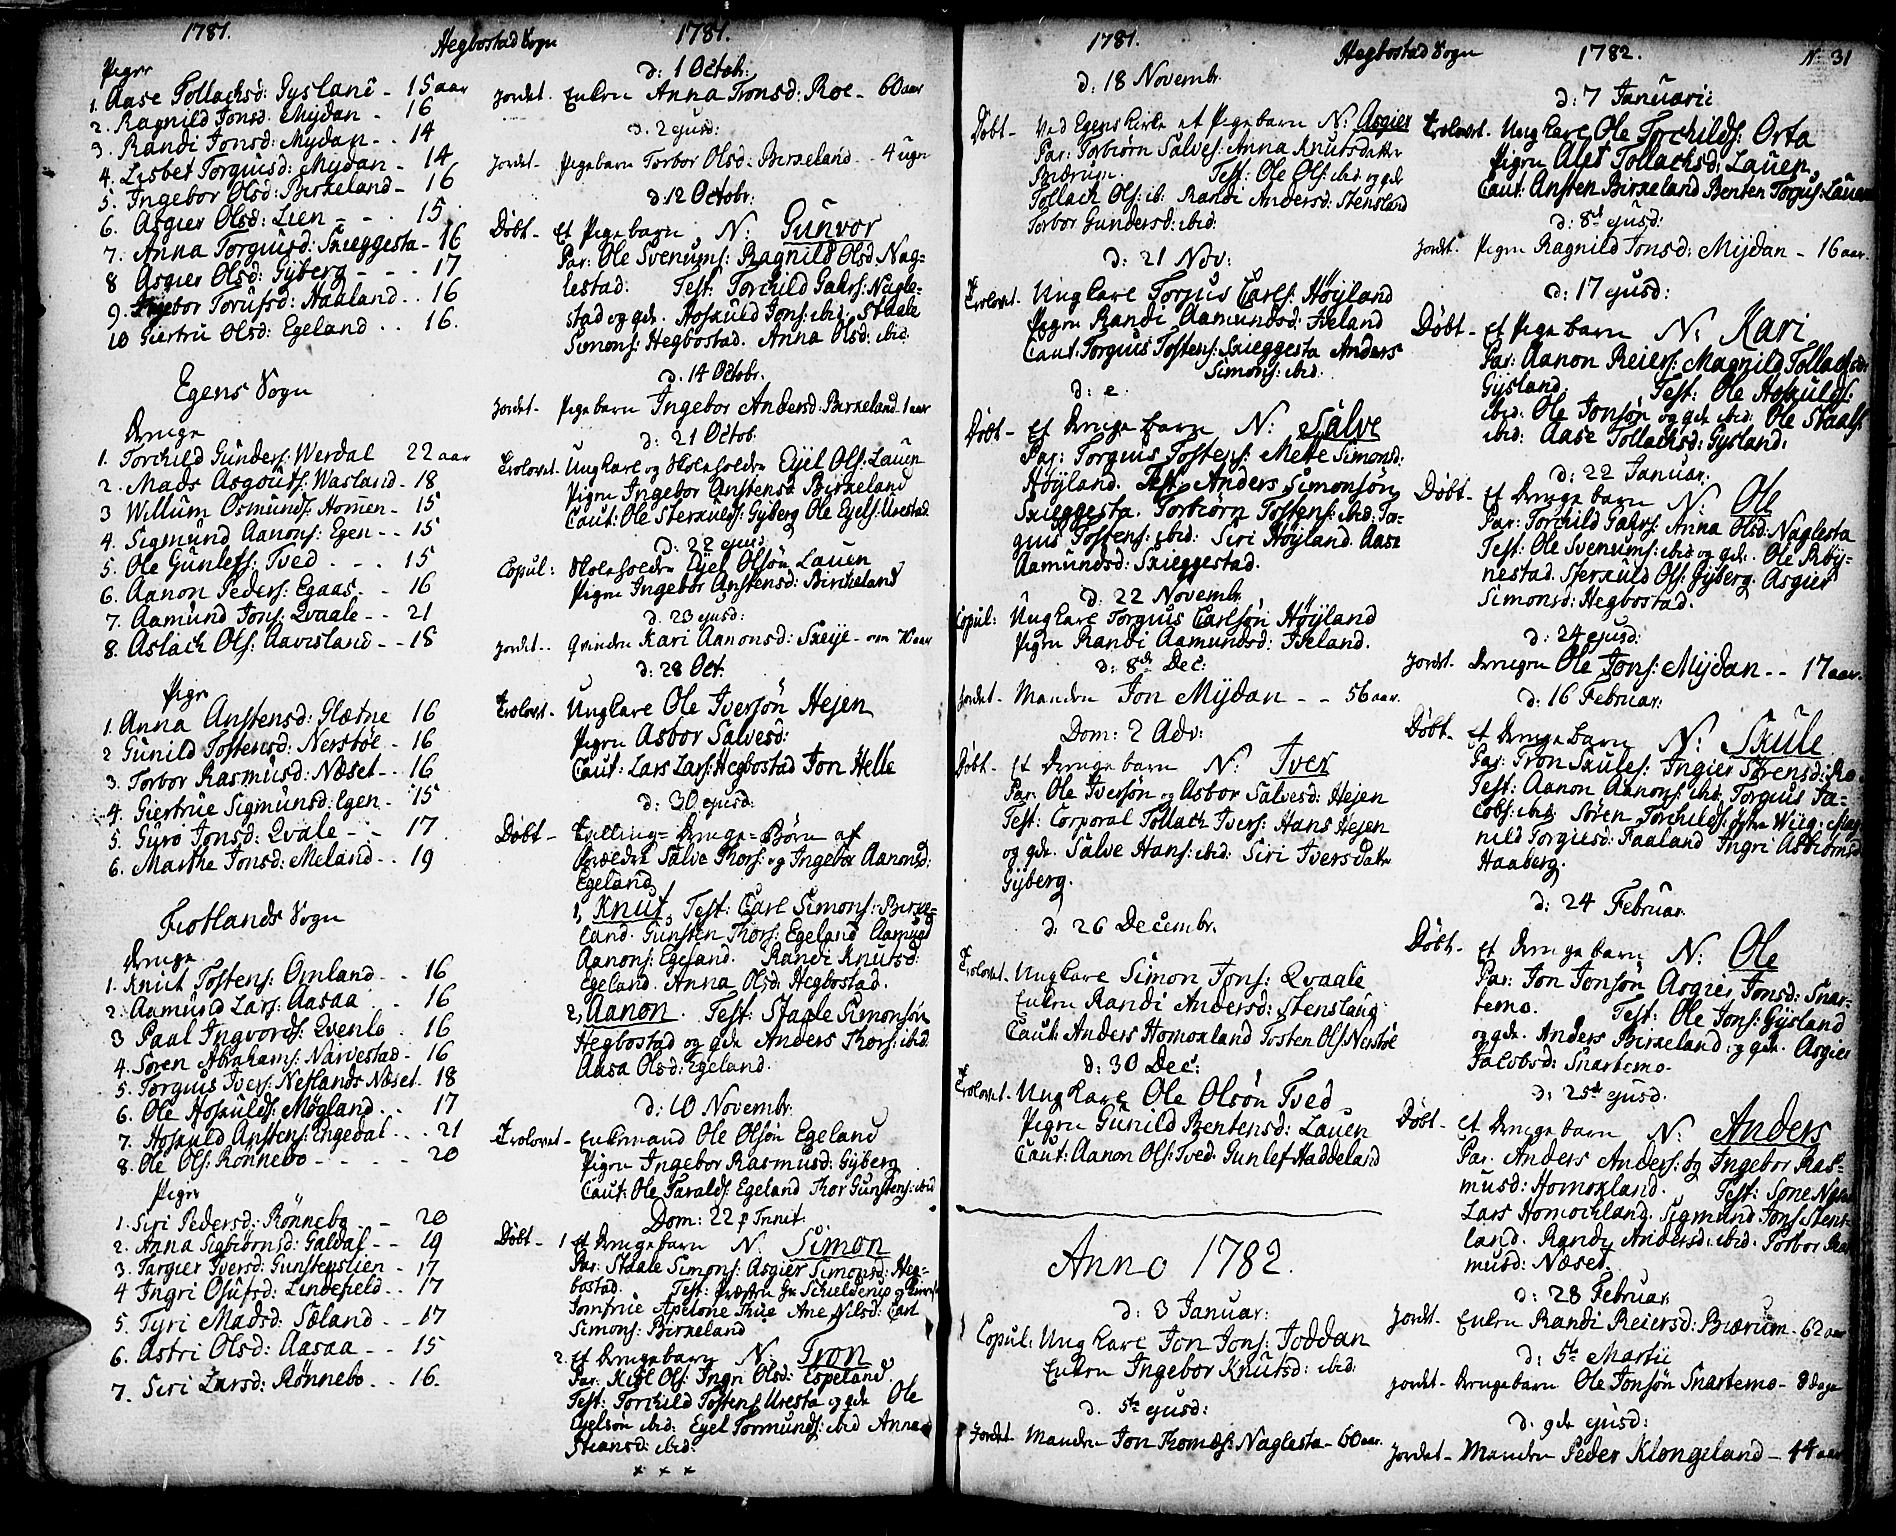 1781. Hegbostad Sogn 1781.
Piger
1. Aase Tollachsd: Gysland - 15 aar
2. Ragnild Jonsd: Mydan - 16
3. Randi Jonsd: Mydan - - 14
4. Lisbet Torguisd: Mydan - 14
5. Ingebor Olsd: Birkeland - 16
6. Asgier Olsd: Lien - - - 15
7. Anna Torguisd: Skieggesta - 16
8 Asgier Olsd: Gyberg - - - 17
9. Ingebor Torufsd: Haaland - - 16
10 Giertru Olsd: Egeland - - 16.
Egens Sogn
Drenge
1. Torchild Gunders: Werdal 22 aar
2. Mads Asgouts: Wasland - 18
3 Willum Osmunds: Homen - 15
4. Sigmund Aanons: Egen - - 15
5. Ole Gunlefs: Tved - - - 15
6. Aanon Peders: Egaas - - 16
7. Aamund Jons: Qvaale - - 21
8. Aslach Ols: Aavesland - - 18
Piger
1. Anna Anstensd: Glætne 16
2 Gunild Tostensd: Nerstøl - 16
3. Torbor Rasmusd: Næset - - 16
4. Giertrue Sigmunsd: Egen - 15
5. Guro Jonsd: Qvale - - 17
6. Marthe Jonsd: Meland - - 19
Fiotlands Sogn
Drenge
1. Knut Tostens: Omland - - 16
2. Aamund Lars: Aasaa - - 16
3 Paal Ingvords: Qvenlo - 16
4. Søren Abrahams: Narvestad - 16
5. Torguis Ivers: Netlands Næset - 18
6. Ole Hoskulds: Møgland - - 17
7. Hoskuld Anstens: Engedal - - 21
8. Ole Ols: Rønnebo - - - - 20
Piger
1. Siri Pedersd: Rønnebo - - 20
2. Anna Sigbiørnsd: Galdal - - 19
3. Targier Iversd: Gunstenslien - - 17
4 Ingri Osufsd: Lindefield - - 17
5. Tyri Madsd: Sæland - - 17
6. Astri Olsd: Aasaa - - 15
7. Siri Larsd: Rønnebo - - 16.
d: 1 Octob:
Jordet. Enken Anna Tronsd: Roe - 60 aar
d. 2 ejusd:
Jordet - Pigebarn Torbor Olsd: Birkeland - - 4 uger
d. 12 Octobr:
Døbt - Et Pigebarn N: Gunvor
Par: Ole Svenums: Ragnild Olsd: Nag=
lestad. Test: Torchild Gahrs: Nagle=
stad og qde. Hoskuld Jons: ibid. Staale
Simons: Hegbostad. Anna Olsd: ibid.
d. 14 Octobr.
Jordet - Pigebarn Ingebor Andersd: Birkeland 1 aar
d: 21 Octob.
Trolovet. Ungkare og Skoleholder Eyel Ols: Lauen
Pigen Ingebor Anstensd Birkeland
Caut: Ole Sterkulds: Gyberg Ole Eyels: Urestad.
d: 22 ejusd.
Copul: Skoleholder Eyel Olsøn Lauen
Pigen Ingebor Anstensd: Birkeland
d. 23 ejusd:
Jordet. - Qvinden Kari Aanonsd: Skeije - om 70 aar
d: 28 Oct.
Trolovet. Ungkare Ole Iversøn Hejen
Pigen Asbor Salvesd:
Caut: Lars Lars: Hegbostad Jon Helle
d: 30 ejusd:
Døbt - Tvilling = Drenge = Børn af
Forældre Salve Thors: og Ingebor Aanonsd:
Egeland
1, Knut, Test: Carl Simons: Birke=
land. Gunsten Thors: Egeland Aamund
Aanons: Egeland. Randi Knutsd:
Egeland. Anna Olsd: Hegbostad.
2, Aanon. Test: Staale Simonsøn
Hegbostad og qde Anders Thors: ibid
Aasa Olsd: Egeland.
d: 10 Novembr.
Trolovet - Enkemand Ole Olsøn Egeland
Pigen Ingebor Rasmusd: Gyberg
Caut: Ole Taralds: Egeland Thor Gunstens: ibid
Dom: 22 p Trinit.
Døbt - 1 Et Drengebarn N: Simon
Par: Staale Simons: Asgier Simonsd: Heg=
bostad. Test: Præsten Hr Schielderup og
Jomfrue Apelone Thue Ane Nilsd: Carl
Simons: Birkeland
2. Et Drengebarn N: Tron
Par: Kield Ols: Ingri Olsd: Espeland.
Test: Torchild Tostens Uresta og qde Ole
Eyelsøn ibid: Eyel Tormunds: ibid Anna
Steansd: ibid:
x x x
1781. Hegbostad Sogn 1782. N: 31
d: 18 Novembr.
Døbt - Ved Egens Kirke et Pigebarn N: Asgier
Par: Torbiørn Salves: Anna Knutsdatter
Birkrem. Test: Ole Ols: ibid og qde
Tollach Ols: ib. Randi Andersd: Stensland
Torbor Gundersd: ibid:
d: 21 Nov:
Trolovet. Ungkare Torguis Carls: Høyland
Pigen Randi Aamundsd: Ikeland
Caut: Torguis Tostens: Skieggesta Anders
Simons: ibid.
d: e.
Døbt - Et Drengebarn N: Salve
Par: Torguis Tostens: Mette Simonsd:
Høyland. Test: Anders Simonsøn
Skieggesta. Torbiørn Tostens: ibid: Tor=
guis Tostens: ibid: Siri Høyland. Aase
Aamundsd: Skieggestad.
d: 22 Novembr.
Copul: Ungkare Torguis Carlsøn Høyland
Pigen Randi Aamundsd: Ikeland.
d: 8de Dec:
Jordet - Manden Jon Mydan - - 56 aar.
Dom: 2 Adv:
Døbt - Et Drengebarn N: Iver
Par: Ole Iversøn og Asbor Salvesd: Hejen
Test: Corporal Tollach Ivers: Hans Hejen
og qde. Salve Hans: ibid: Siri Iversdatter
Gyberg.
d: 26 Decembr.
Trolovet - Ungkare Simon Jons: Qvaale
Enken Randi Andersd: Stensland
Caut: Anders Homokland Tosten Ols: Nerstøl
d: 30 Dec:
Trolovet - Ungkare Ole Olsøn Tved
Pigen Gunild Bentensd: Lauen
Caut: Aanon Ols: Tved. Gunlef Haddeland
Anno 1782.
d: 3 Januar:
Copul: Ungkare Jon Jons: Joddan
Enken Ingebor Knutsd: ibid:
d. 5te ejusd:
Jordet - Manden Jon Thomæs: Naglesta - 60 aar.
d: 7 Januarii
Trolovet. Ungkare Ole Torchilds: Orta
Pigen Ales Tollachsd: Lauen
Caut: Ansten Birkeland Benten Torguis: Lauen
d: 8de ejusd:
Jordet. Pigen Ragnild Jonsd: Mydan - 16 aar.
d: 17 ejusd:
Døbt - Et Pigebarn N: Kari
Par: Aanon Reiers: Magnild Tollachsd:
Gysland. Test: Ole Hoskulds:
ibid: Ole Jonsøn og qde ibid: Ole Staals:
ibid: Aase Tollachsd: Gysland:
d: 22 Januar:
Døbt - Et Drengebarn N: Ole
Par: Torchild Gahrs: Anna Olsd: Naglesta
Test: Ole Svenums: ibid og qde. Ole Røy=
nestad. Sterkuld Ols: Gyberg. Asgier
Simonsd: Hegbostad.
d: 24 ejusd:
Jordet - Drengen Ole Jons: Mydan - - 17 aar.
d: 16 Februar:
Døbt - Et Drengebarn N: Skule
Par: Tron Skules: Ingier Sørensd: Ro
Test: Aanon Aanons: ibid: Torguis Ja=
cobs: ibid: Søren Torchilds: Wiig: Mag
nild Torgiesd: Faaland Ingri Asbiørnsd
Haaberg.
d: 24 Februar.
Døbt - Et Drengebarn N: Ole
Par: Jon Jonsøn Asgier Jonsd: Snar=
temo. Test: Ole Jons: Gysland
og qde. Anders Birkeland og qde. Asgier
Jalobsd: Snartemo.
d: 25de ejusd.
Døbt - Et Drengebarn N: Anders
Par. Anders Anders: og Ingebor Ras=
musd: Homokland. Test: Sone
Lars Homochland. Sigmund Jons Stens=
land. Randi Andersd: ibid. Torbor Ras
musd: Næset.
d: 28 Februar.
Jordet. Enken Randi Reiersd: Bierum - 62 aar
d: 5te Martii
Jordet - Drengebarn Ole Jonsøn Snartemo - 8 dage
d: 9de ejusd:
Jordet - Manden Peder Klongeland - 44 aar